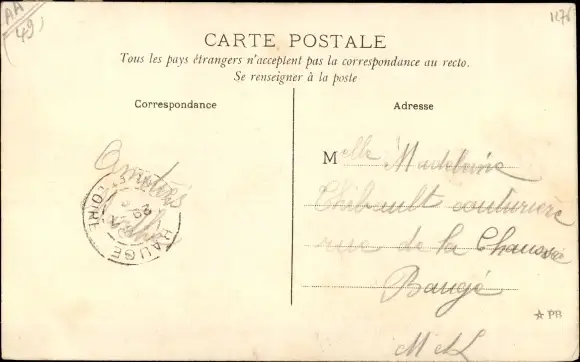 AA
49
1276
CARTE POSTALE
Tous les pays étrangers n'acceptent pas la correspondance au recto.
Se renseigner à la poste
Correspondance
Adresse
Amitiés
BAUGÉ
ET LOIRE
29
Melle Madeleine
Thibault couturière
rue de la Chaussée
Baugé
M et L
☆ PB